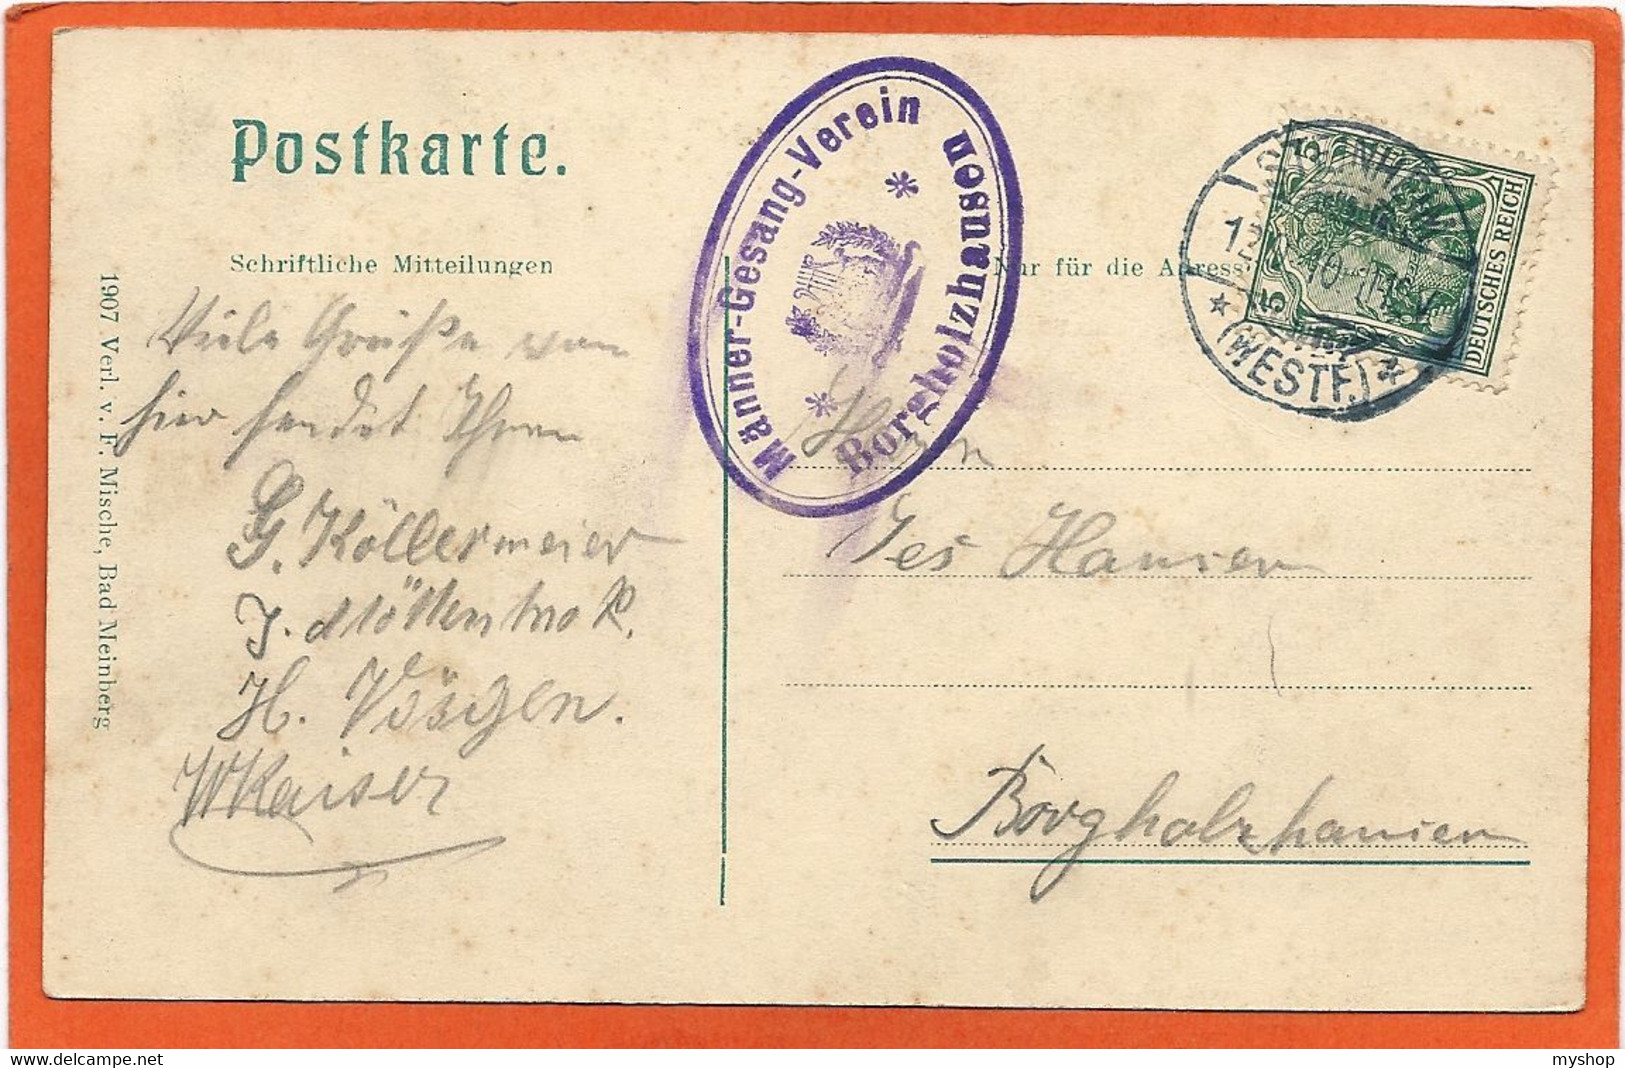 Postkarte.
Schriftliche Mitteilungen
Nur für die Adresse
1907 Verl. v. F. Mische, Bad Meinberg
Männer-Gesang-Verein
Borgholzhausen
DEUTSCHES REICH
5
5
(WESTF.)
Viele Grüße von
hier sendet Ihnen
G. Köllermeier
J.
H. Vösgen.
WKaiser
Herrn
Jes Hansen
Borgholzhausen
myshop